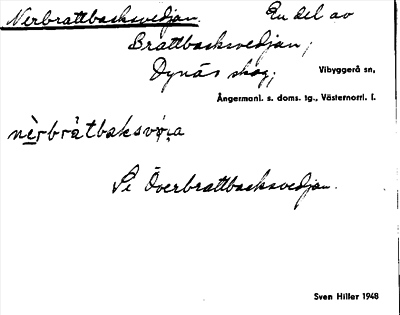 Nerbrattbacksvedjan. En del av
Brattbacksvedjan,
Dynäs skog, Vibyggerå sn,
Ångermanl. s. doms. tg., Västernorrl. l.
Se Överbrattbacksvedjan.
Sven Hiller 1948